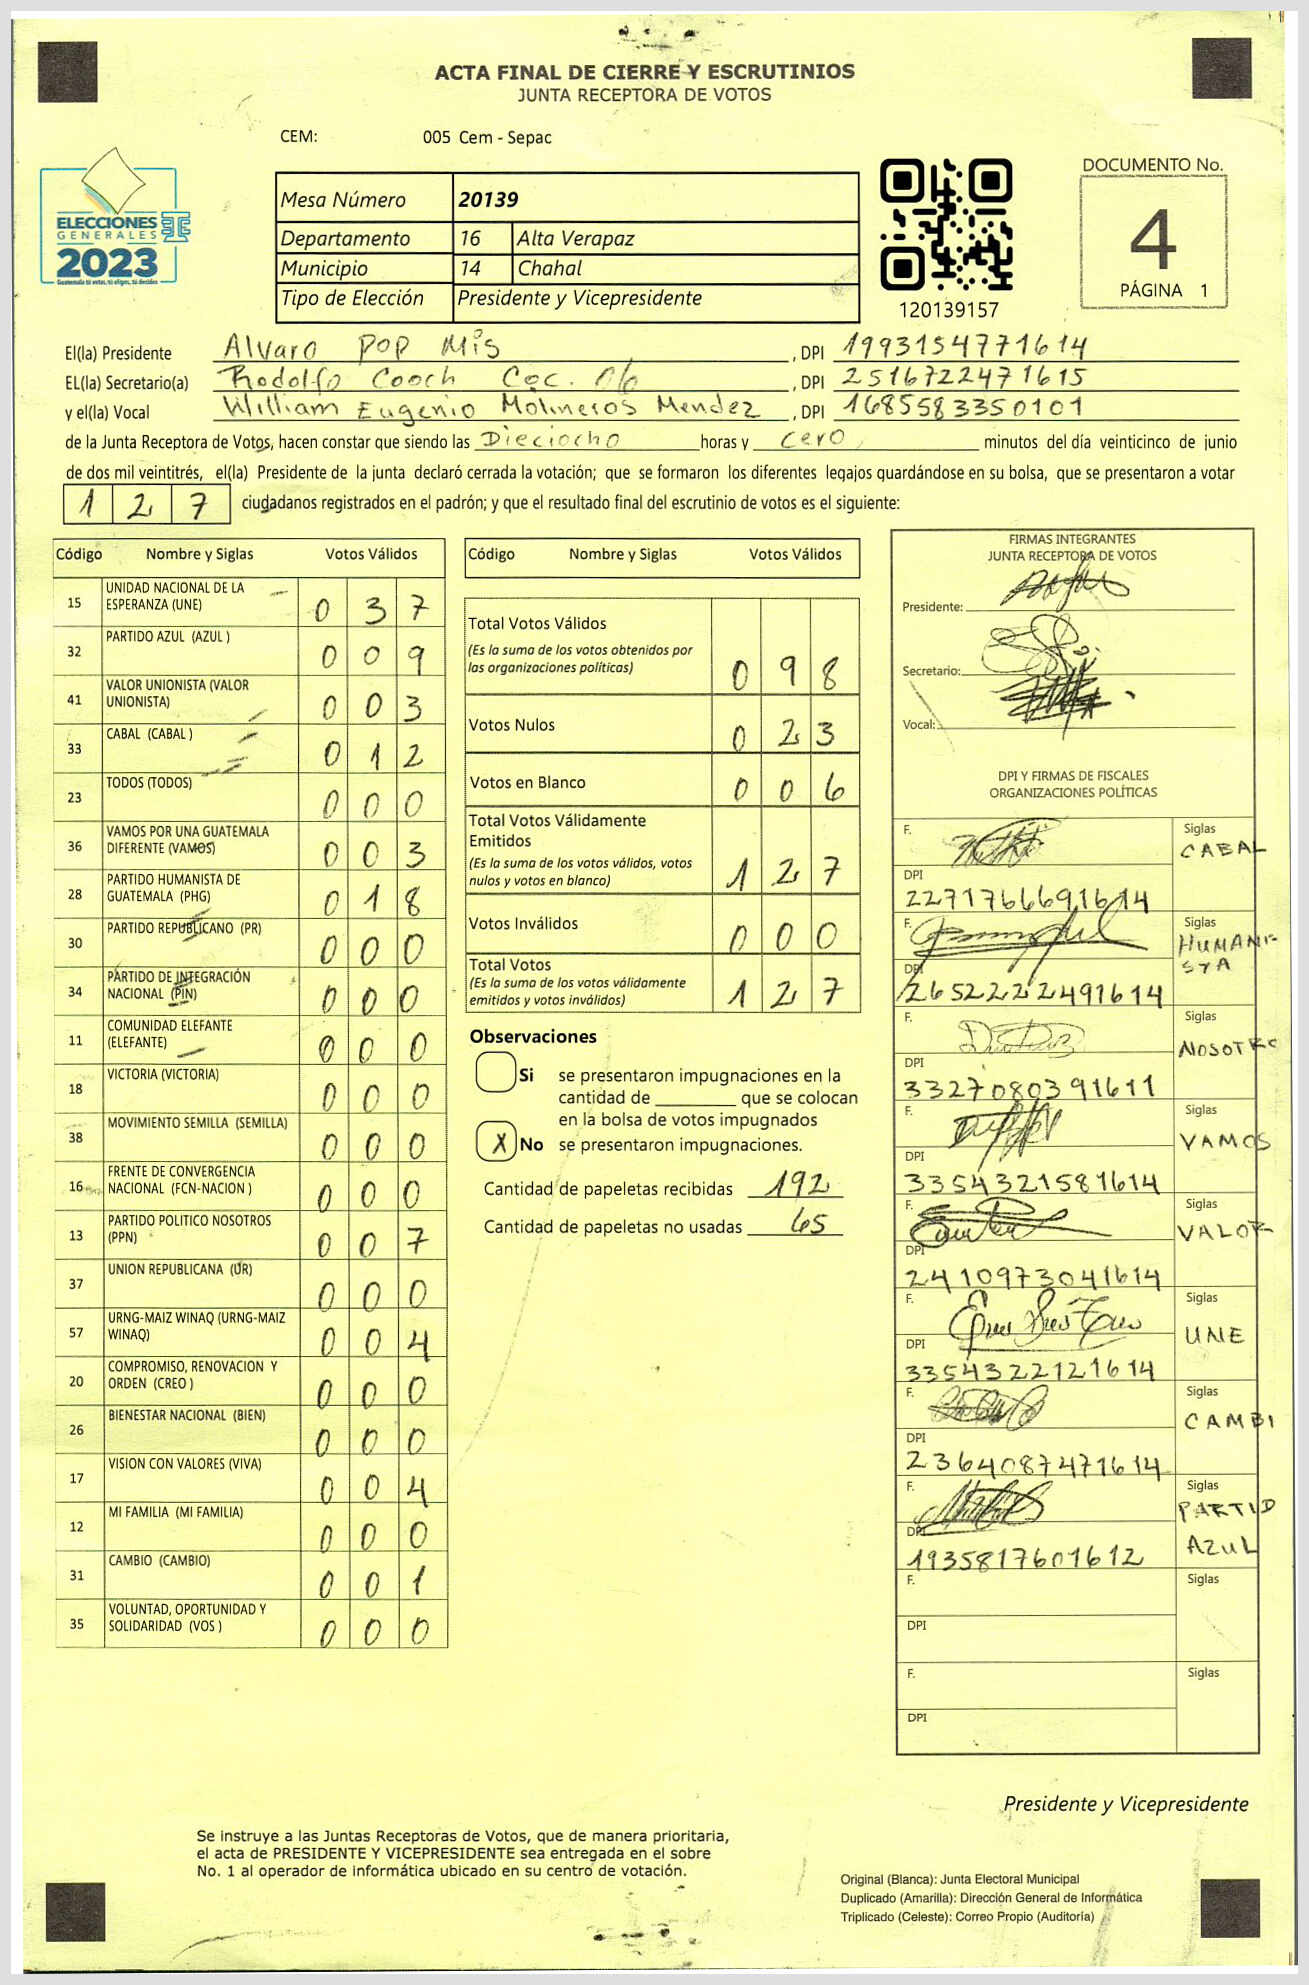 ACTA FINAL DE CIERRE Y ESCRUTINIOS
JUNTA RECEPTORA DE VOTOS
CEM: 005 Cem - Sepac
ELECCIONES
GENERALES
2023
Guatemala tú votas, tú eliges, tú decides
Mesa Número 20139
Departamento 16 Alta Verapaz
Municipio 14 Chahal
Tipo de Elección Presidente y Vicepresidente
120139157
DOCUMENTO No.
4
PÁGINA 1
El(la) Presidente Alvaro Pop Mis , DPI 1993154771614
EL(la) Secretario(a) Rodolfo Cooch Coc. , DPI 2516722471615
y el(la) Vocal William Eugenio Molineros Mendez , DPI 1685583350101
de la Junta Receptora de Votos, hacen constar que siendo las Dieciocho horas y cero minutos del día veinticinco de junio
de dos mil veintitrés, el(la) Presidente de la junta declaró cerrada la votación; que se formaron los diferentes legajos quardándose en su bolsa, que se presentaron a votar
1 2 7 ciudadanos registrados en el padrón; y que el resultado final del escrutinio de votos es el siguiente:
Código Nombre y Siglas Votos Válidos
15 UNIDAD NACIONAL DE LA ESPERANZA (UNE) 0 3 7
32 PARTIDO AZUL (AZUL ) 0 0 9
41 VALOR UNIONISTA (VALOR UNIONISTA) 0 0 3
33 CABAL (CABAL ) 0 1 2
23 TODOS (TODOS) 0 0 0
36 VAMOS POR UNA GUATEMALA DIFERENTE (VAMOS) 0 0 3
28 PARTIDO HUMANISTA DE GUATEMALA (PHG) 0 1 8
30 PARTIDO REPUBLICANO (PR) 0 0 0
34 PARTIDO DE INTEGRACIÓN NACIONAL (PIN) 0 0 0
11 COMUNIDAD ELEFANTE (ELEFANTE) 0 0 0
18 VICTORIA (VICTORIA) 0 0 0
38 MOVIMIENTO SEMILLA (SEMILLA) 0 0 0
16 FRENTE DE CONVERGENCIA NACIONAL (FCN-NACION ) 0 0 0
13 PARTIDO POLITICO NOSOTROS (PPN) 0 0 7
37 UNION REPUBLICANA (UR) 0 0 0
57 URNG-MAIZ WINAQ (URNG-MAIZ WINAQ) 0 0 4
20 COMPROMISO, RENOVACION Y ORDEN (CREO ) 0 0 0
26 BIENESTAR NACIONAL (BIEN) 0 0 0
17 VISION CON VALORES (VIVA) 0 0 4
12 MI FAMILIA (MI FAMILIA) 0 0 0
31 CAMBIO (CAMBIO) 0 0 1
35 VOLUNTAD, OPORTUNIDAD Y SOLIDARIDAD (VOS ) 0 0 0
Código Nombre y Siglas Votos Válidos
Total Votos Válidos
(Es la suma de los votos obtenidos por
las organizaciones políticas) 0 9 8
Votos Nulos 0 2 3
Votos en Blanco 0 0 6
Total Votos Válidamente
Emitidos
(Es la suma de los votos válidos, votos
nulos y votos en blanco) 1 2 7
Votos Inválidos 0 0 0
Total Votos
(Es la suma de los votos válidamente
emitidos y votos inválidos) 1 2 7
Observaciones
Si se presentaron impugnaciones en la
cantidad de ________ que se colocan
en la bolsa de votos impugnados
X No se presentaron impugnaciones.
Cantidad de papeletas recibidas 192
Cantidad de papeletas no usadas 65
FIRMAS INTEGRANTES
JUNTA RECEPTORA DE VOTOS
Presidente:
Secretario:
Vocal:
DPI Y FIRMAS DE FISCALES
ORGANIZACIONES POLÍTICAS
F. Siglas CABAL
DPI 2271766691614
F. Siglas HUMANI-
STA
DPI 2652222491614
F. Siglas NOSOTRO
DPI 3327080391611
F. Siglas VAMOS
DPI 3354321581614
F. Siglas VALOR
DPI 2410973041614
F. Siglas UNE
DPI 3354322121614
F. Siglas CAMBI
DPI 2364087471614
F. Siglas PARTID
AZUL
DPI 1935817601612
F. Siglas
DPI
F. Siglas
DPI
Presidente y Vicepresidente
Se instruye a las Juntas Receptoras de Votos, que de manera prioritaria,
el acta de PRESIDENTE Y VICEPRESIDENTE sea entregada en el sobre
No. 1 al operador de informática ubicado en su centro de votación.
Original (Blanca): Junta Electoral Municipal
Duplicado (Amarilla): Dirección General de Informática
Triplicado (Celeste): Correo Propio (Auditoría)